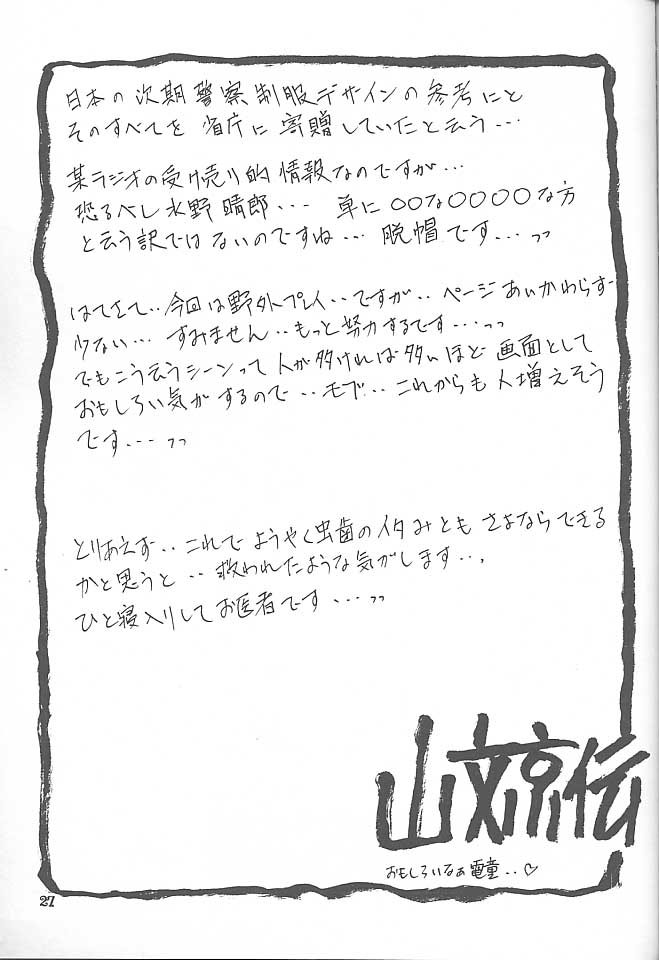 日本の次期警察制服デザインの参考にと
そのすべてを省庁に寄贈していたと云う…
某ラジオの受け売り的情報なのですが…
恐るべし水野晴郎… 単に○○な○○○○な方
と云う訳ではないのですね… 脱帽です…っっ
はてさて‥今回は野外プレイ‥ですが‥ページあいかわらず
少ない… すみません‥もっと努力するです…っっ
でもこう云うシーンって人が多ければ多いほど画面として
おもしろい気がするので‥モブ‥これからも人増えそう
です…っっ
とりあえず‥これでようやく虫歯のイタみともさよならできる
かと思うと‥救われたような気がします‥、
ひと寝入りしてお医者です…っっ
山文京伝
おもしろいなぁ電童‥♡
27